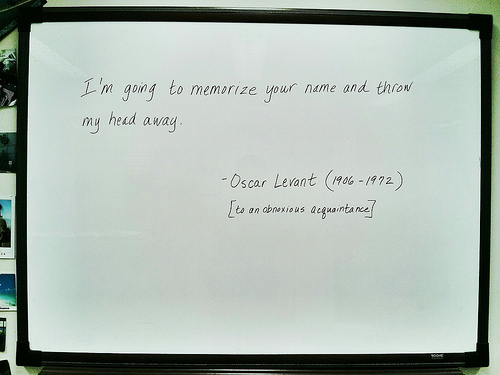 I'm going to memorize your name and throw
my head away.
- Oscar Levant (1906-1972)
[to an obnoxious acquaintance]